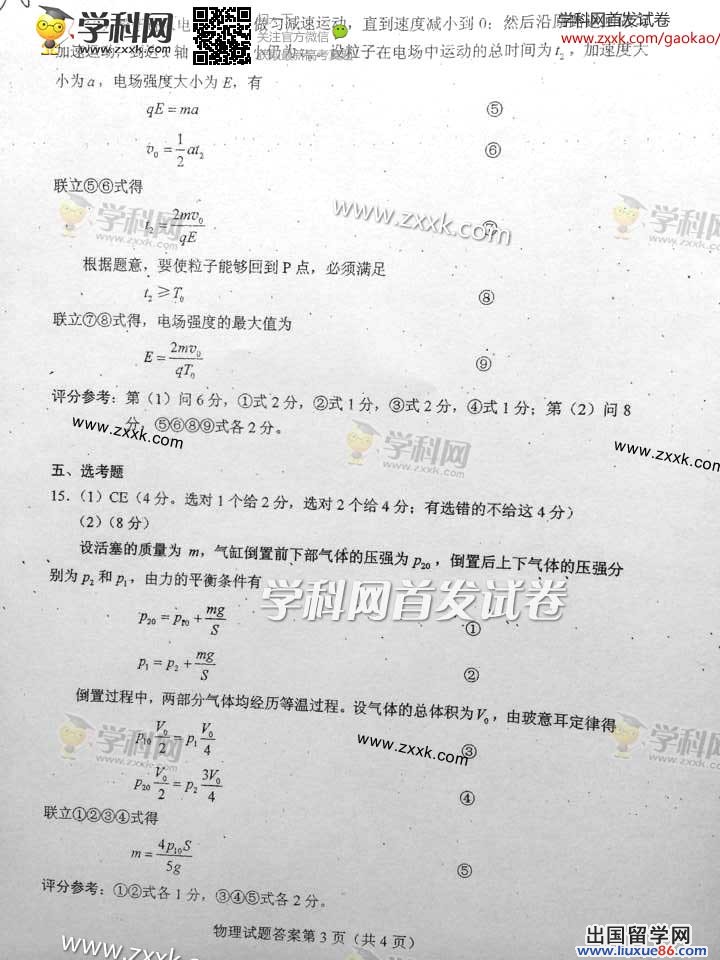 学科网
www.zxxk.com
关注官方微信
获取最新高考真题
学科网首发试卷
http://www.zxxk.com/gaokao/
做匀减速运动，直到速度减小到0；然后沿原
加速运动，到达x轴 设粒子在电场中运动的总时间为t₂，加速度大
小为a，电场强度大小为E，有
qE=ma ⑤
v₀=\frac{1}{2}at₂ ⑥
联立⑤⑥式得
t₂=\frac{2mv₀}{qE} ⑦
根据题意，要使粒子能够回到P点，必须满足
t₂≥T₀ ⑧
联立⑦⑧式得，电场强度的最大值为
E=\frac{2mv₀}{qT₀} ⑨
评分参考：第（1）问6分，①式2分，②式1分，③式2分，④式1分；第（2）问8
分，⑤⑥⑧⑨式各2分。
五、选考题
15.（1）CE（4分。选对1个给2分，选对2个给4分；有选错的不给这4分）
（2）（8分）
设活塞的质量为m，气缸倒置前下部气体的压强为p₂₀，倒置后上下气体的压强分
别为p₂和p₁，由力的平衡条件有
学科网首发试卷
p₂₀=p₁₀+\frac{mg}{S} ①
p₁=p₂+\frac{mg}{S} ②
倒置过程中，两部分气体均经历等温过程。设气体的总体积为V₀，由玻意耳定律得
p₁₀\frac{V₀}{2}=p₁\frac{V₀}{4} ③
p₂₀\frac{V₀}{2}=p₂\frac{3V₀}{4} ④
联立①②③④式得
m=\frac{4p₁₀S}{5g} ⑤
评分参考：①②式各1分，③④⑤式各2分。
物理试题答案第3页（共4页）
www.zxxk.com
出国留学网
www.liuxue86.com